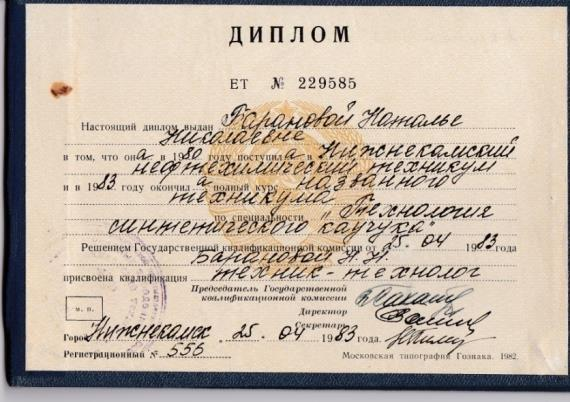 ДИПЛОМ
ЕТ № 229585
Настоящий диплом выдан Барановой Наталье
Николаевне
в том, что она в 1980 году поступила в Нижнекамский
нефтехимический техникум
и в 1983 году окончила полный курс названного
техникума
по специальности "Технология
синтетического каучука"
Решением Государственной квалификационной комиссии от 25.04 1983 года
Барановой Н.Н.
присвоена квалификация техник-технолог
Председатель Государственной
квалификационной комиссии
Директор
М. П.
Секретарь
Город Нижнекамск, 25. 04 1983 года.
Регистрационный № 556
Московская типография Гознака. 1982.